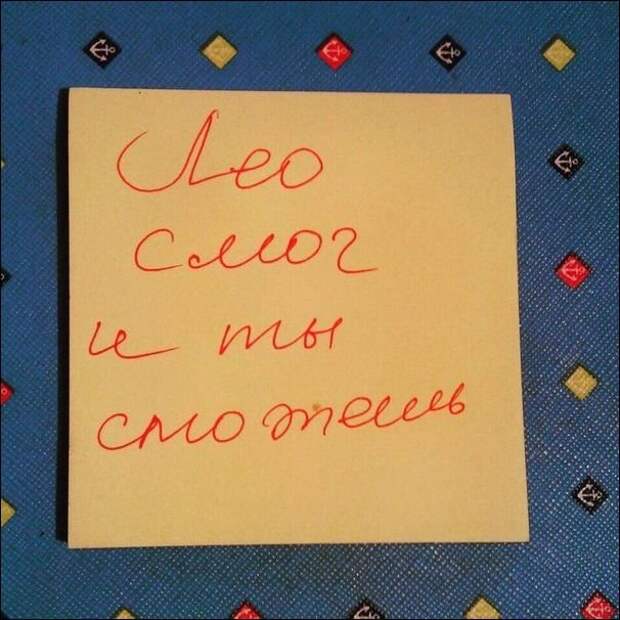 Лео
смог
и ты
сможешь